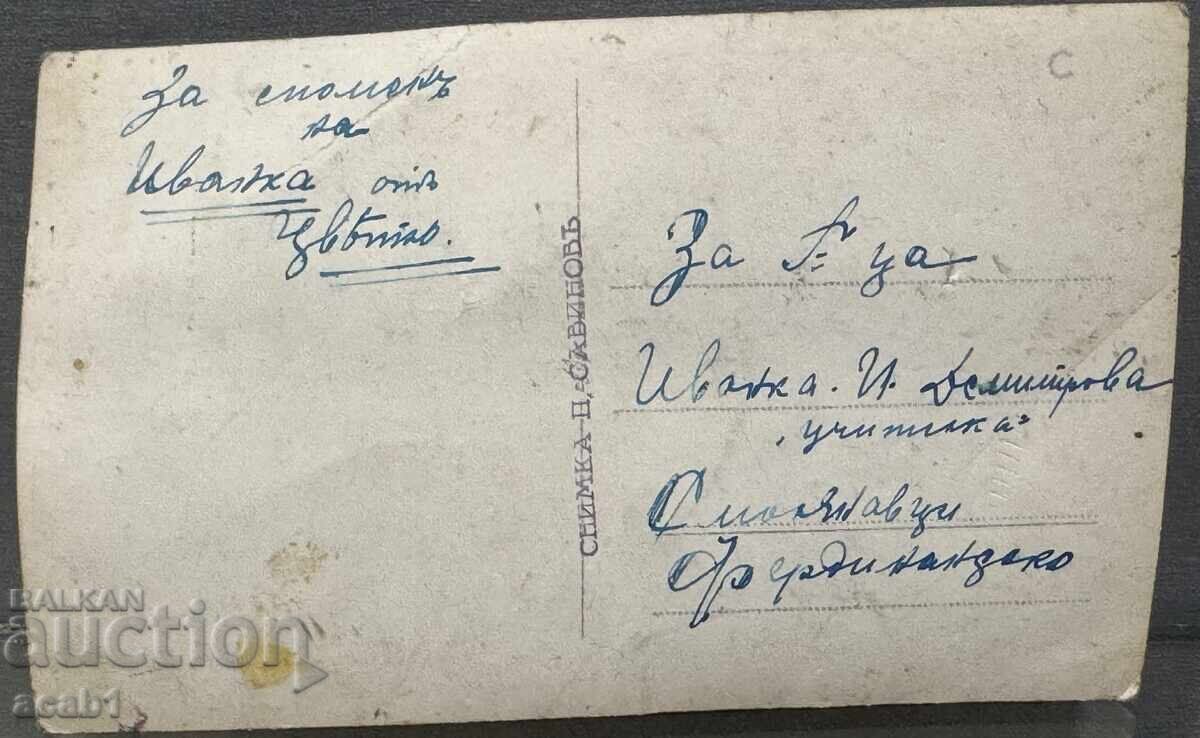 За споменъ
на
Иванка отъ
Цвѣтко.
СНИМКА Н. САВИНОВЪ
С
За Г-ца
Иванка. И. Димитрова
"учителка"
Смоляновци
Фердинандско
BALKAN
auction
acab1